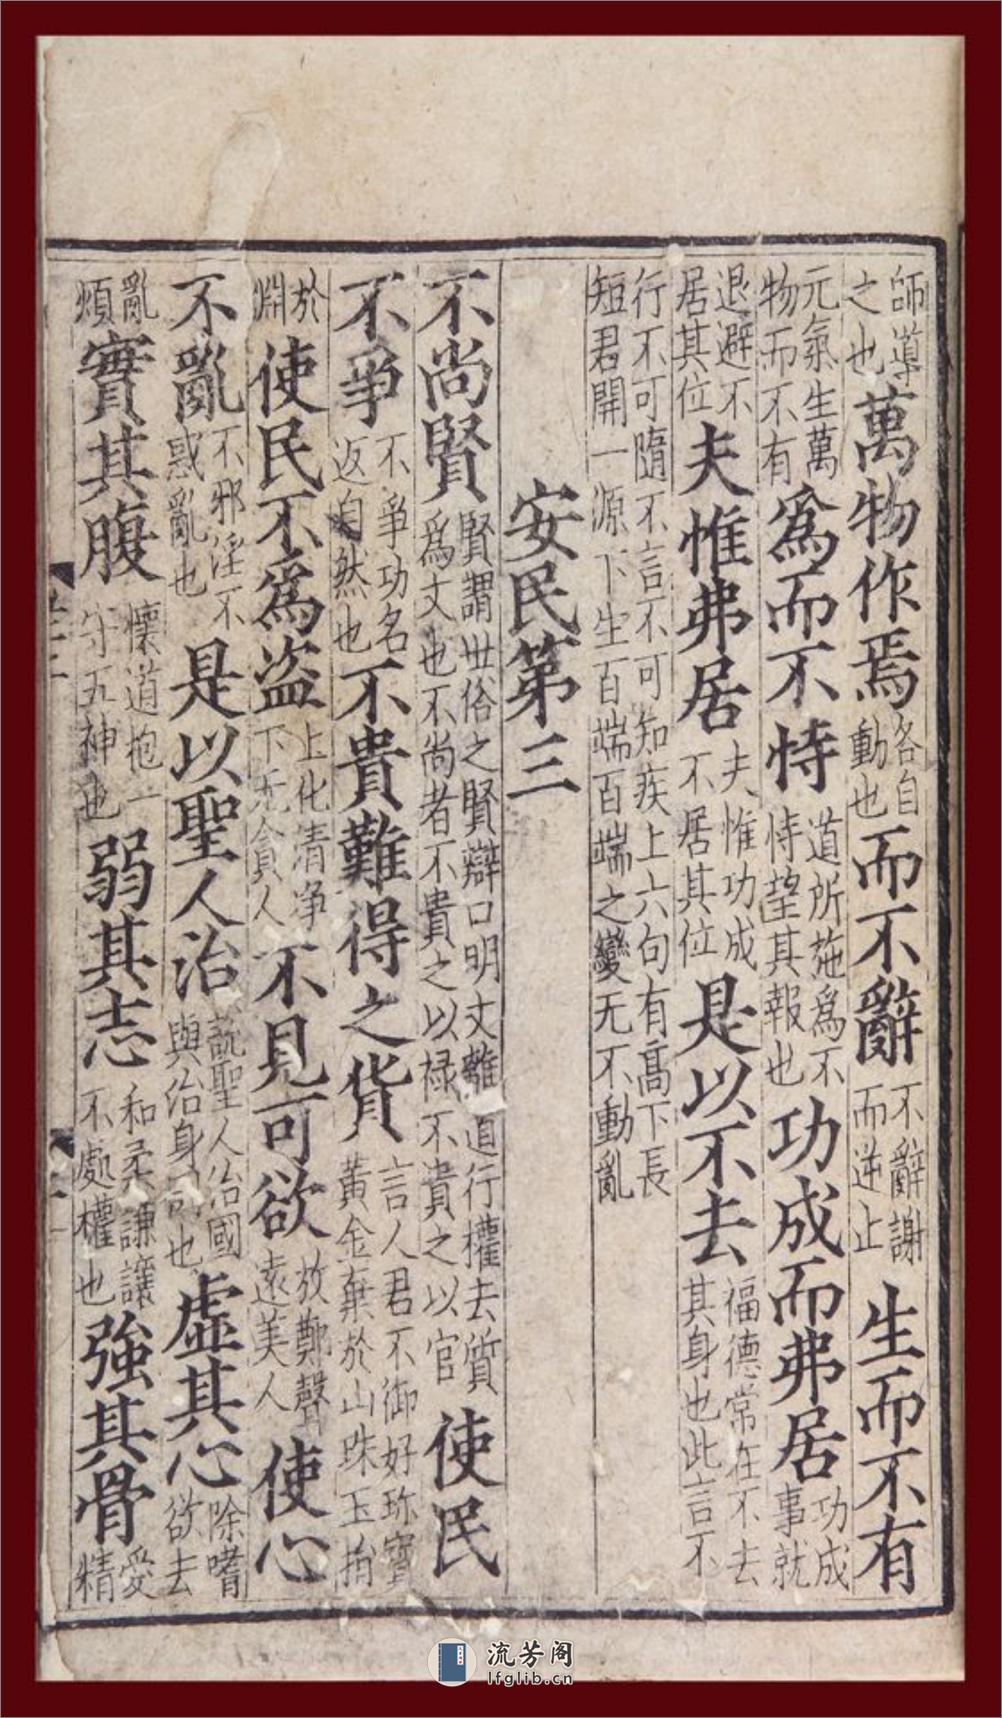 師導之也萬物作焉各自動也而不辭不辭謝而逆止生而不有
元氣生萬物而不有爲而不恃道所施爲不恃望其報也功成而弗居功成事就
退避不居其位夫惟弗居夫惟功成不居其位是以不去福德常在不去其身也此言不
行不可隨不言不可知疾上六句有高下長短君開一源下生百端百端之變无不動亂
安民第三
不尚賢賢謂世俗之賢辯口明文離道行權去質爲文也不尚者不貴之以禄不貴之以官使民
不爭不爭功名返自然也不貴難得之貨言人君不御好珍寶黃金棄於山珠玉捐
於淵使民不爲盜上化清淨下无貪人不見可欲放鄭聲遠美人使心
不亂不邪淫不惑亂也是以聖人治說聖人治國與治身也虛其心除嗜欲去
亂煩實其腹懷道抱一守五神也弱其志和柔謙讓不處權也強其骨愛精
流芳阁
lfglib.cn